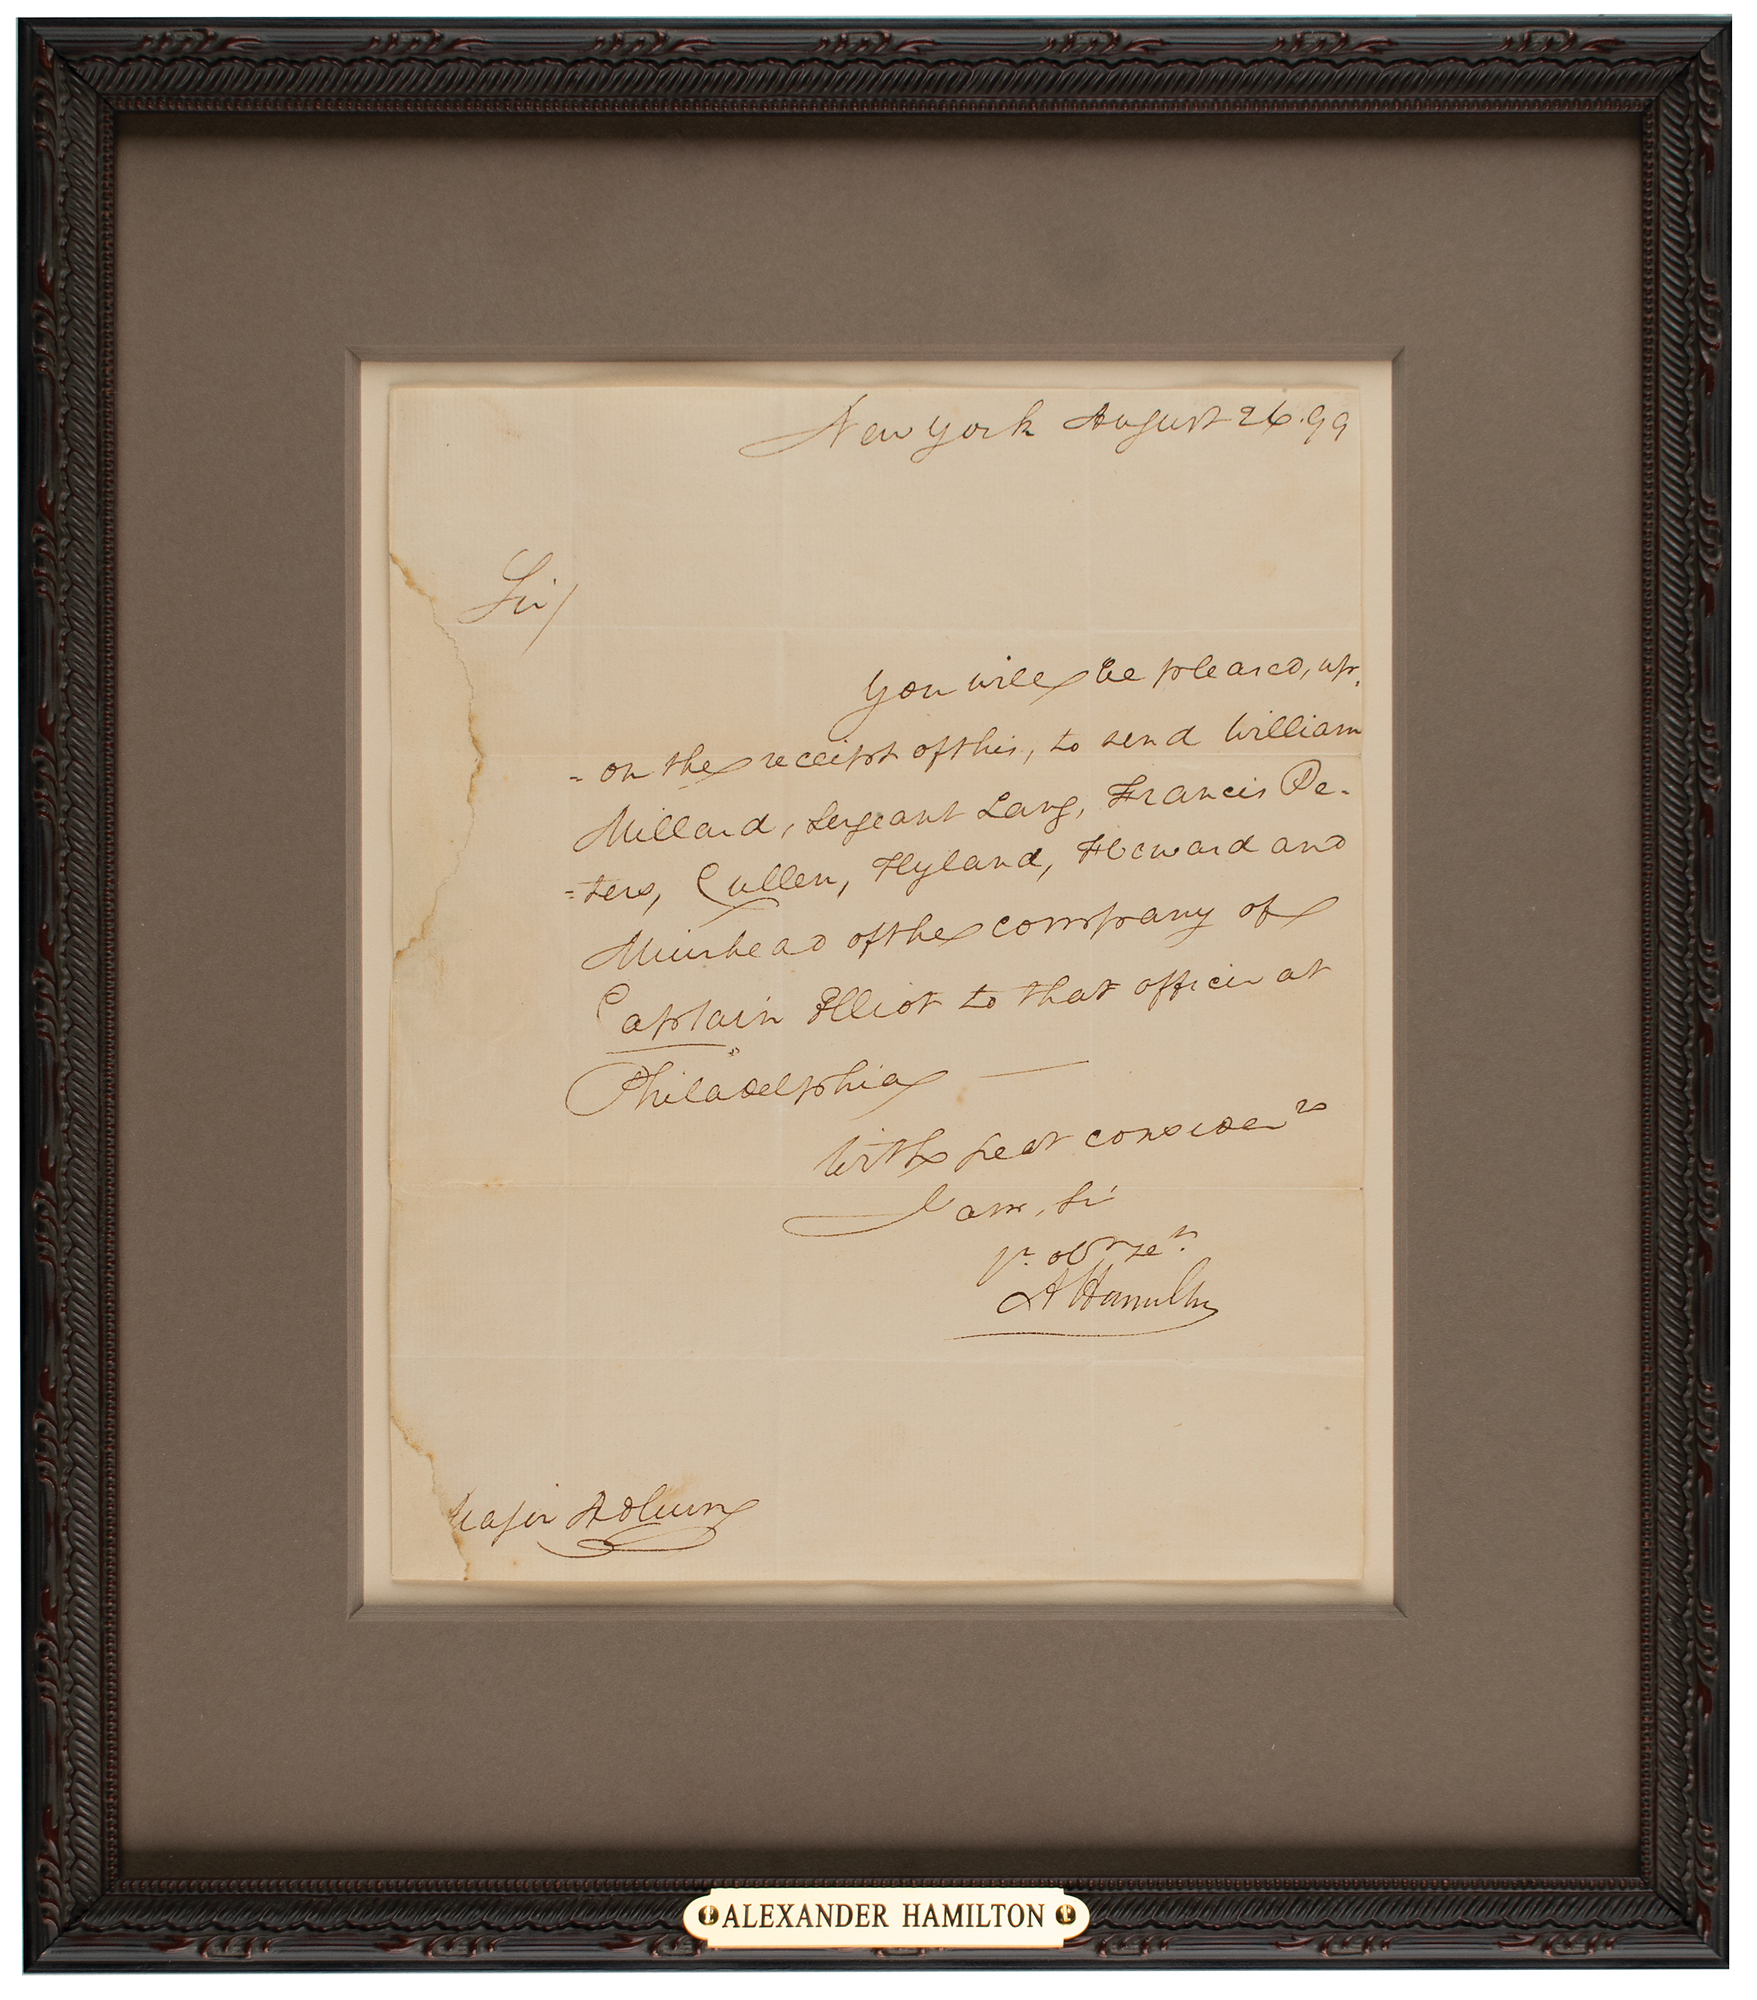 New York August 26. 99
Sir/
You will be pleased, up-
=on the receipt of this, to send William
Millard, Sergeant Lang, Francis Pe-
=ters, Cullen, Hyland, Howard and
Muirhead of the company of
Captain Elliot to that officer at
Philadelphia —
With great consider^n
I am, Sir
yr. obt se^t.
A Hamilton
Major Adlum
ALEXANDER HAMILTON